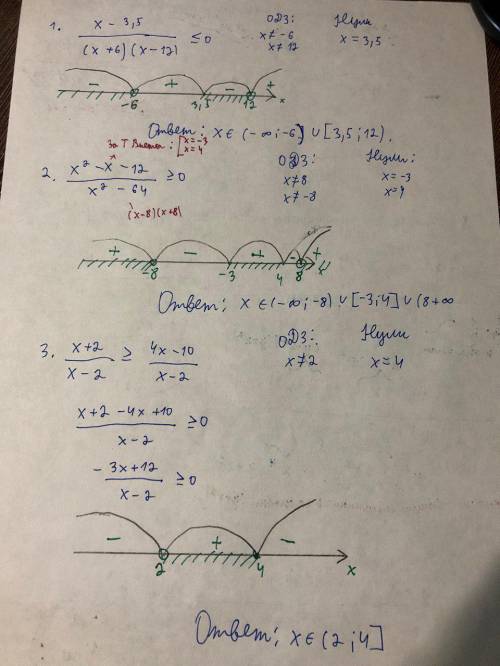 1. (x - 3,5) / ((x+6)(x-12)) ≤ 0 ОДЗ: x ≠ -6 x ≠ 12 Нули x = 3,5
- + - +
-6 3,5 12 x
Ответ: x ∈ (-∞; -6) ∪ [3,5; 12).
За Т Виета: [x = -3 x = 4
2. (x² - x - 12) / (x² - 64) ≥ 0 ОДЗ: x ≠ 8 x ≠ -8 Нули: x = -3 x = 4
(x-8)(x+8)
+ - + - +
-8 -3 4 8
Ответ: x ∈ (-∞; -8) ∪ [-3; 4] ∪ (8 +∞
3. (x+2) / (x-2) ≥ (4x-10) / (x-2) ОДЗ: x ≠ 2 Нули x = 4
(x+2-4x+10) / (x-2) ≥ 0
(-3x+12) / (x-2) ≥ 0
- + -
2 4 x
Ответ: x ∈ (2; 4]